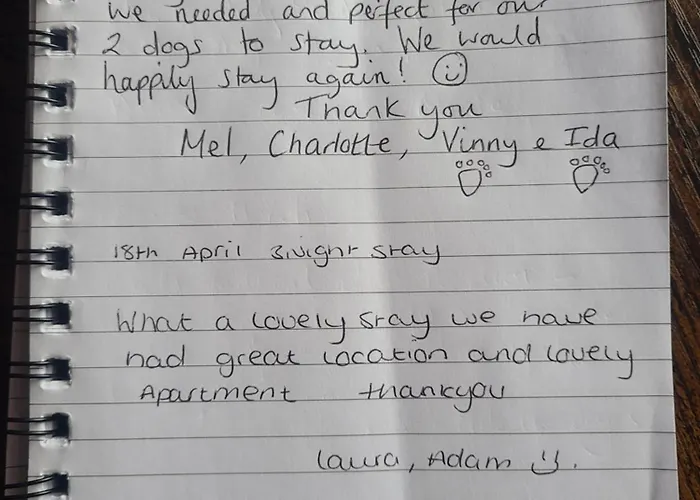 we needed and perfect for our
2 dogs to stay. We would
happily stay again! ☺
Thank you
Mel, Charlotte, Vinny & Ida
18th April 3 night stay
What a lovely stay we have
had great location and lovely
Apartment thankyou
Laura, Adam ☺.